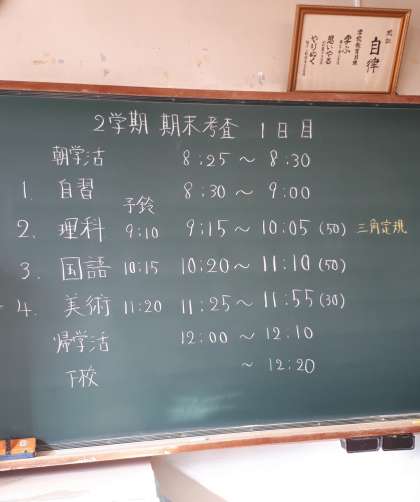 自律
学ぶ
思いやる
やりぬく
2学期 期末考査 1日目
朝学活 8:25 ~ 8:30
1. 自習 8:30 ~ 9:00
予鈴
2. 理科 9:10 9:15 ~ 10:05 (50) 三角定規
3. 国語 10:15 10:20 ~ 11:10 (50)
4. 美術 11:20 11:25 ~ 11:55 (30)
帰学活 12:00 ~ 12:10
下校 ~ 12:20